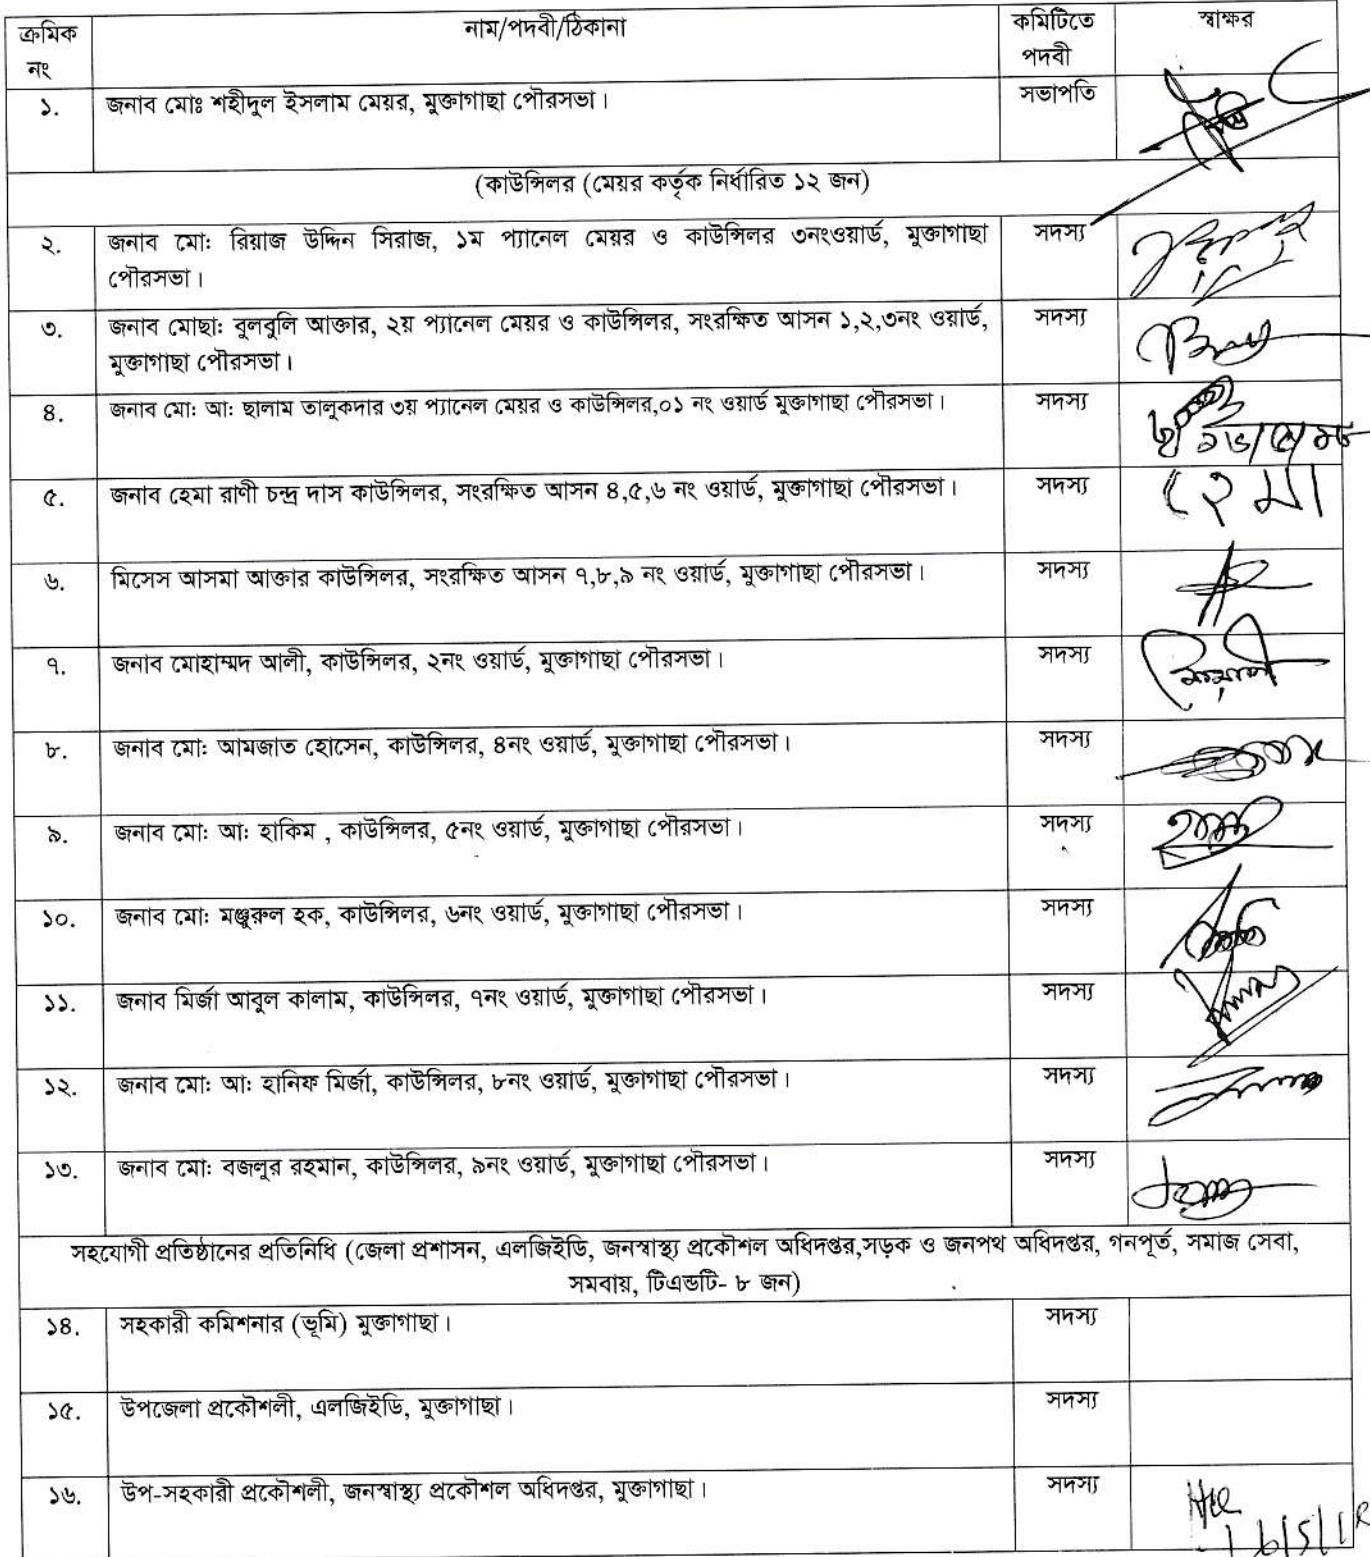 ক্রমিক নং নাম/পদবী/ঠিকানা কমিটিতে পদবী স্বাক্ষর
১. জনাব মোঃ শহীদুল ইসলাম মেয়র, মুক্তাগাছা পৌরসভা। সভাপতি
(কাউন্সিলর (মেয়র কর্তৃক নির্ধারিত ১২ জন)
২. জনাব মো: রিয়াজ উদ্দিন সিরাজ, ১ম প্যানেল মেয়র ও কাউন্সিলর ৩নংওয়ার্ড, মুক্তাগাছা সদস্য
পৌরসভা।
৩. জনাব মোছা: বুলবুলি আক্তার, ২য় প্যানেল মেয়র ও কাউন্সিলর, সংরক্ষিত আসন ১,২,৩নং ওয়ার্ড, সদস্য
মুক্তাগাছা পৌরসভা।
৪. জনাব মো: আ: ছালাম তালুকদার ৩য় প্যানেল মেয়র ও কাউন্সিলর,০১ নং ওয়ার্ড মুক্তাগাছা পৌরসভা। সদস্য
৫. জনাব হেমা রাণী চন্দ্র দাস কাউন্সিলর, সংরক্ষিত আসন ৪,৫,৬ নং ওয়ার্ড, মুক্তাগাছা পৌরসভা। সদস্য হেমা
৬. মিসেস আসমা আক্তার কাউন্সিলর, সংরক্ষিত আসন ৭,৮,৯ নং ওয়ার্ড, মুক্তাগাছা পৌরসভা। সদস্য
৭. জনাব মোহাম্মদ আলী, কাউন্সিলর, ২নং ওয়ার্ড, মুক্তাগাছা পৌরসভা। সদস্য
৮. জনাব মো: আমজাত হোসেন, কাউন্সিলর, ৪নং ওয়ার্ড, মুক্তাগাছা পৌরসভা। সদস্য
৯. জনাব মো: আ: হাকিম , কাউন্সিলর, ৫নং ওয়ার্ড, মুক্তাগাছা পৌরসভা। সদস্য
১০. জনাব মো: মঞ্জুরুল হক, কাউন্সিলর, ৬নং ওয়ার্ড, মুক্তাগাছা পৌরসভা। সদস্য
১১. জনাব মির্জা আবুল কালাম, কাউন্সিলর, ৭নং ওয়ার্ড, মুক্তাগাছা পৌরসভা। সদস্য
১২. জনাব মো: আ: হানিফ মির্জা, কাউন্সিলর, ৮নং ওয়ার্ড, মুক্তাগাছা পৌরসভা। সদস্য
১৩. জনাব মো: বজলুর রহমান, কাউন্সিলর, ৯নং ওয়ার্ড, মুক্তাগাছা পৌরসভা। সদস্য
সহযোগী প্রতিষ্ঠানের প্রতিনিধি (জেলা প্রশাসন, এলজিইডি, জনস্বাস্থ্য প্রকৌশল অধিদপ্তর,সড়ক ও জনপথ অধিদপ্তর, গনপূর্ত, সমাজ সেবা,
সমবায়, টিএন্ডটি- ৮ জন)
১৪. সহকারী কমিশনার (ভূমি) মুক্তাগাছা। সদস্য
১৫. উপজেলা প্রকৌশলী, এলজিইডি, মুক্তাগাছা। সদস্য
১৬. উপ-সহকারী প্রকৌশলী, জনস্বাস্থ্য প্রকৌশল অধিদপ্তর, মুক্তাগাছা। সদস্য